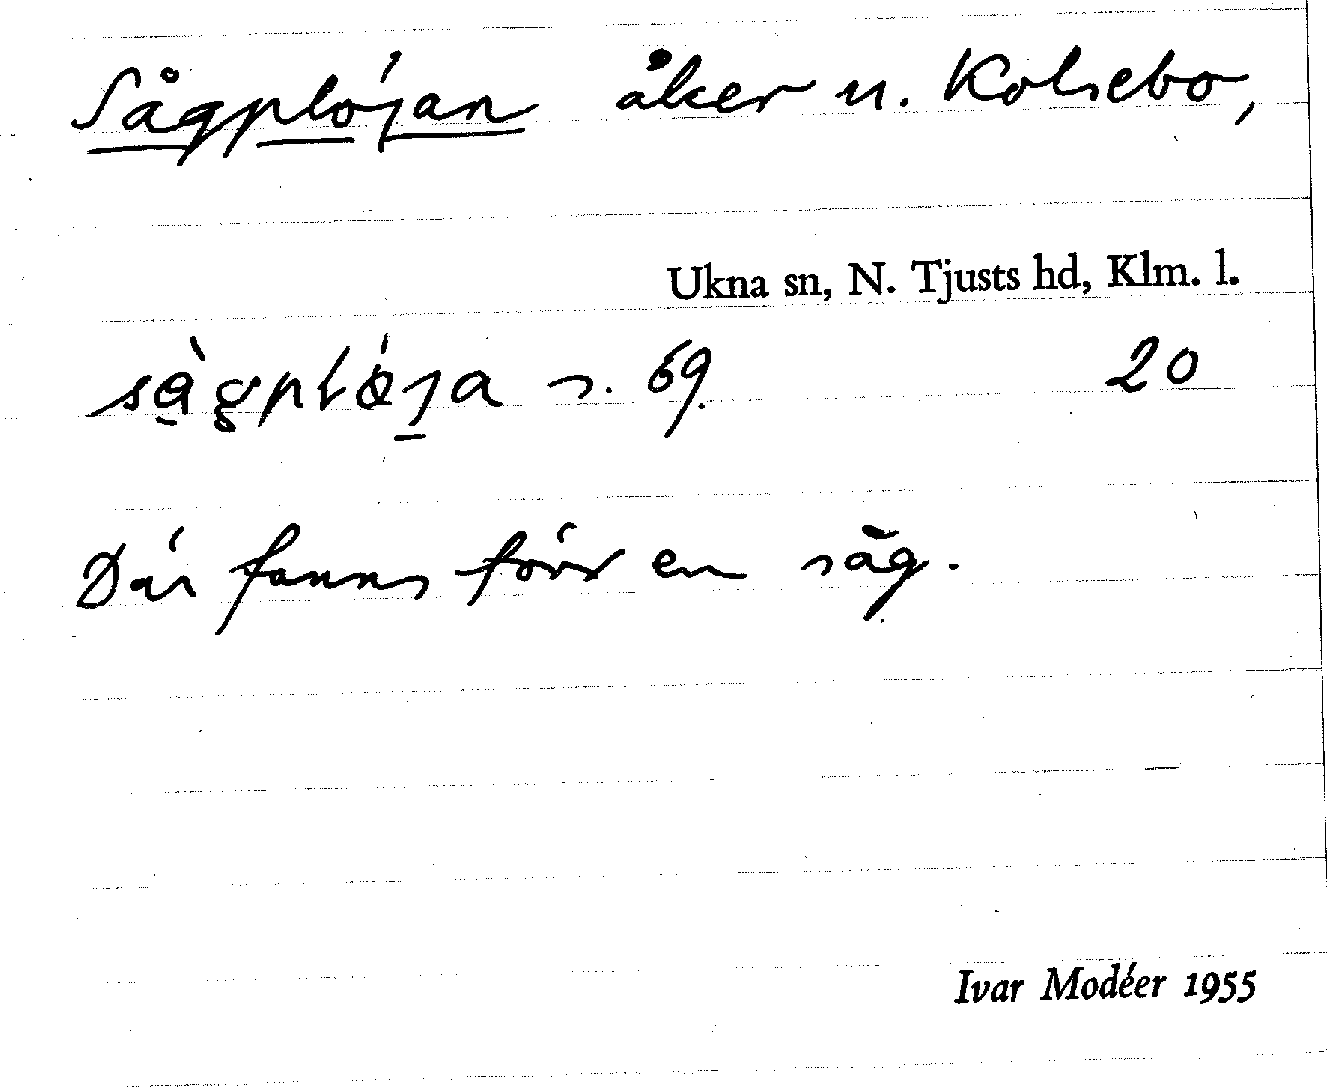 Sågplöjan åker u. Kolsebo,
Ukna sn, N. Tjusts hd, Klm. l.
s. 69. 20
Där fanns förr en såg.
Ivar Modéer 1955